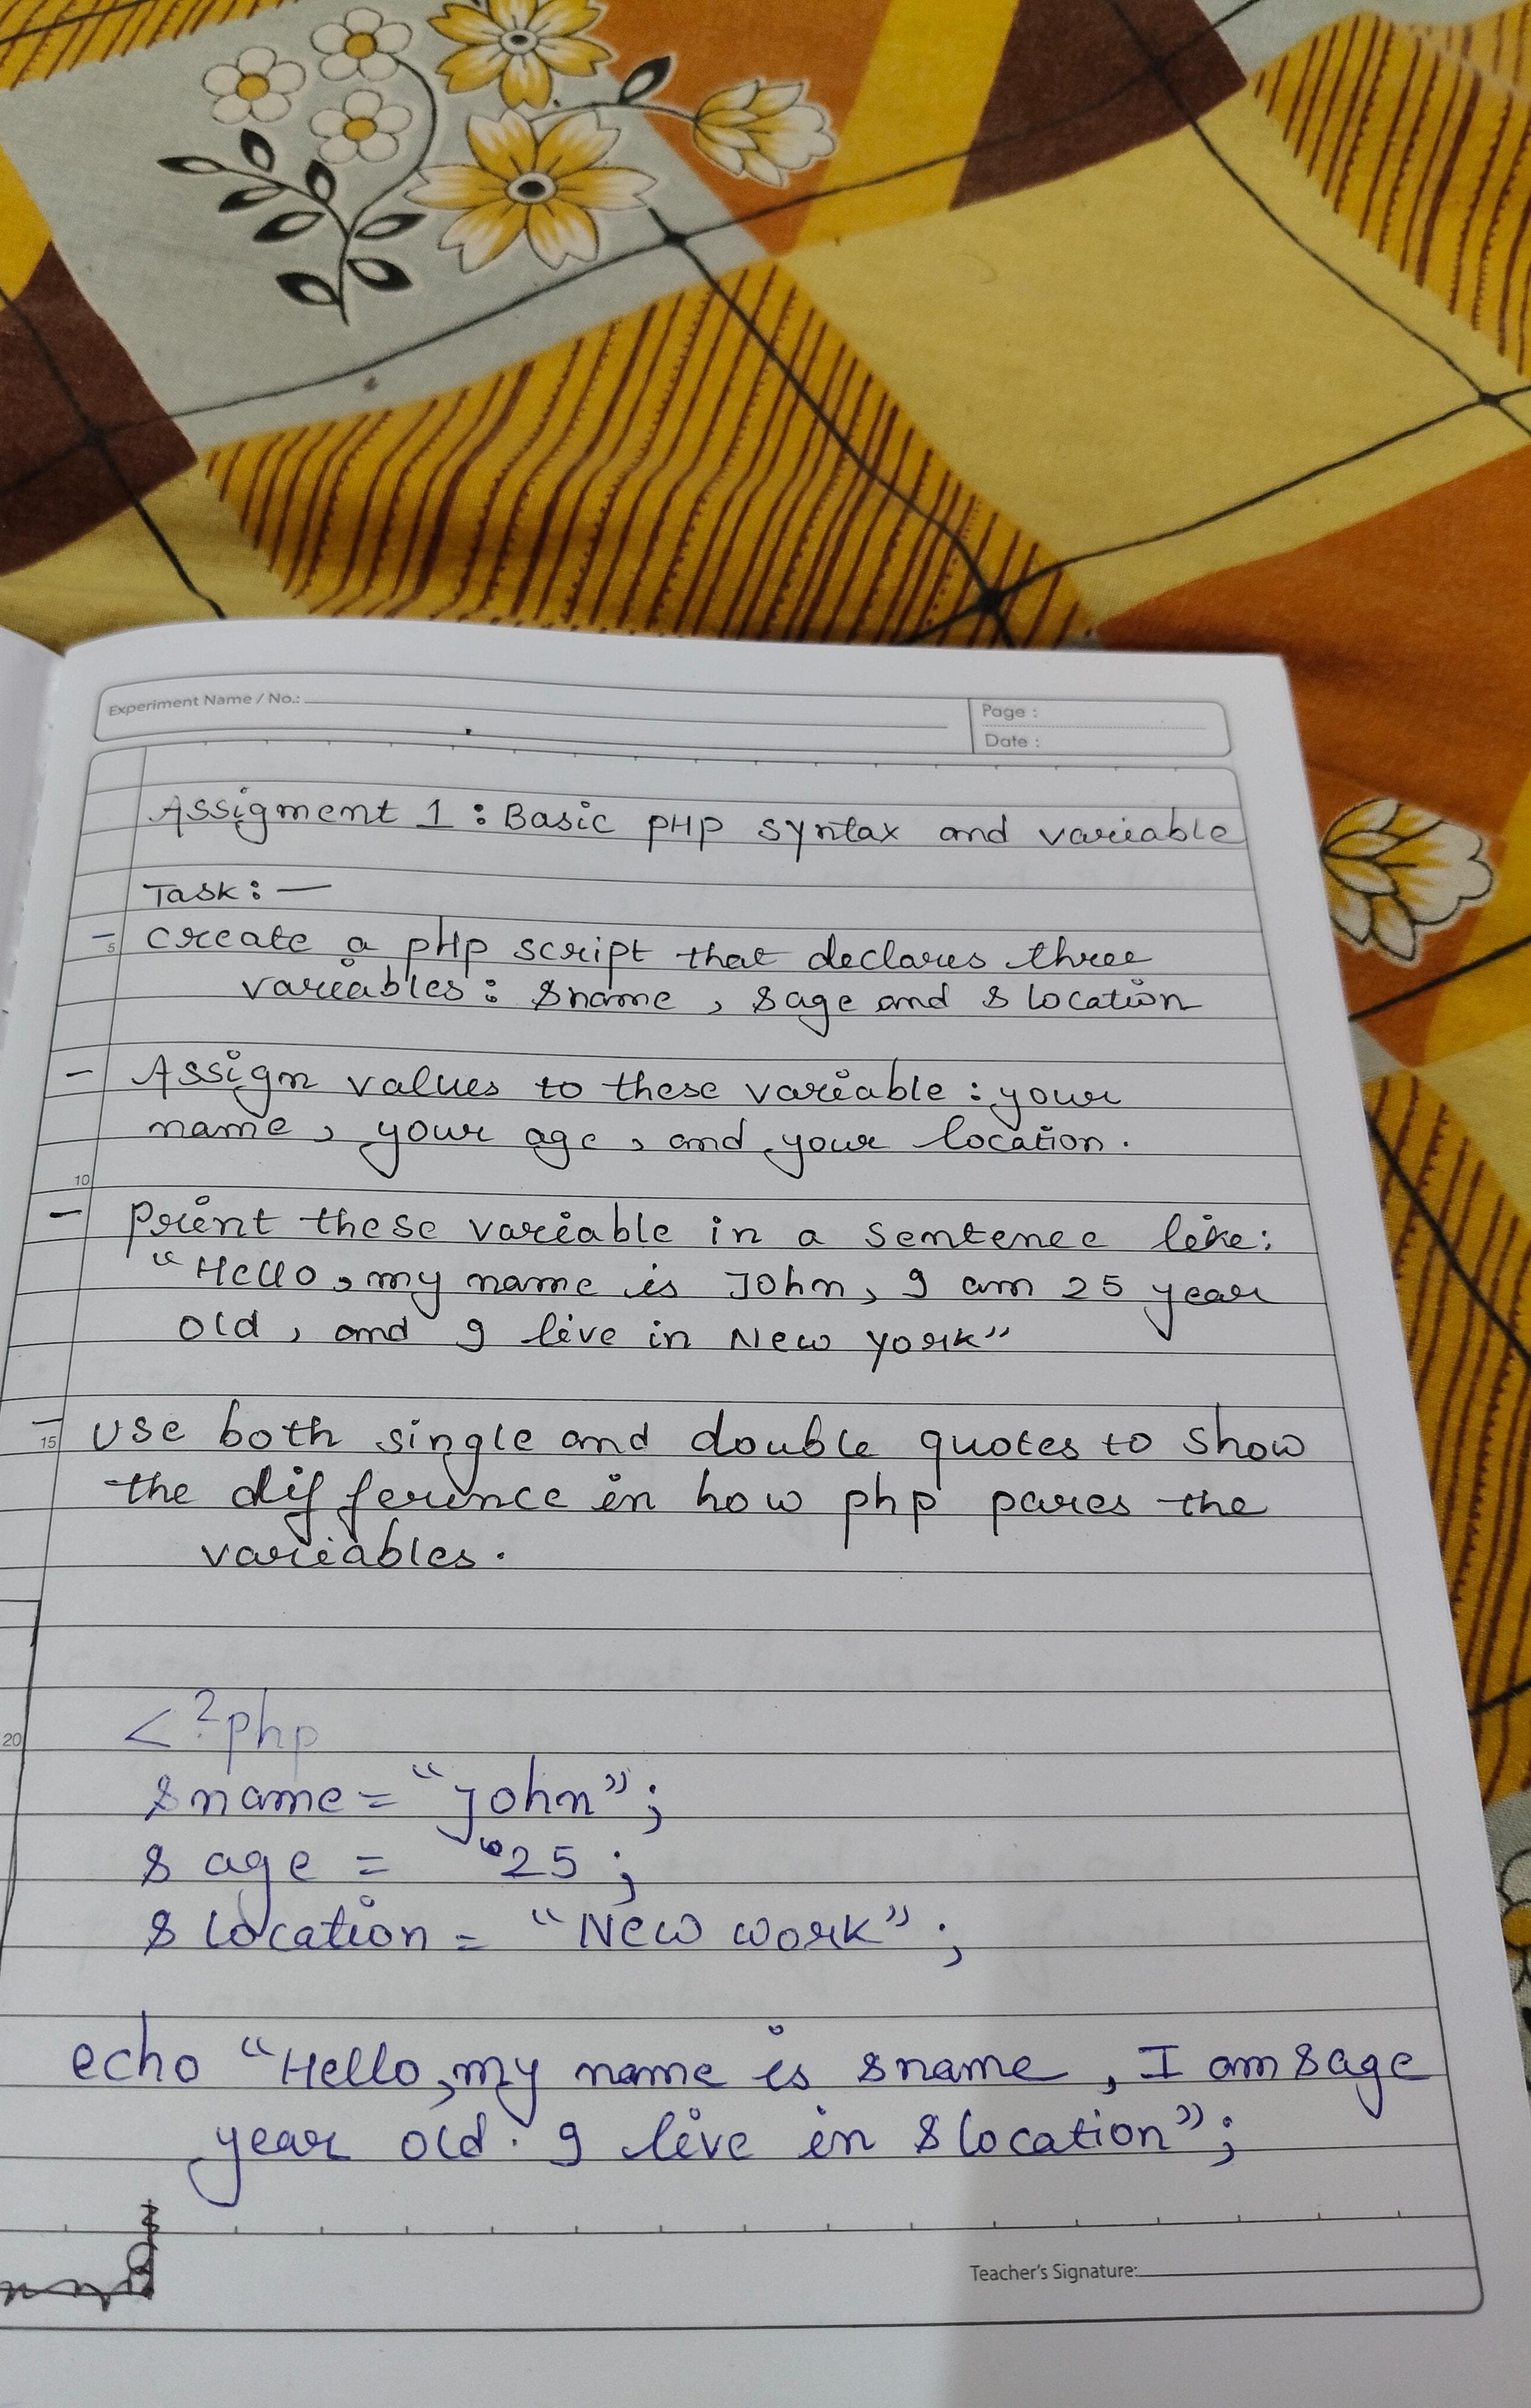 Experiment Name / No.:
Page :
Date :
Assigment 1 : Basic PHP syntax and variable
Task : —
5
- create a pHp script that declares three
variables : $name , $age and $ location
- Assign values to these variable : your
name , your age , and your location .
10
- Print these variable in a sentence like :
" Hello , my name is John , I am 25 year
old , and I live in New york "
15
- use both single and double quotes to show
the difference in how php pares the
variables .
20
< ? php
$ name = " John " ;
$ age = 25 ;
$ location = " New work " ;
echo " Hello , my name is $name , I am $age
year old . I live in $ location " ;
Teacher's Signature: